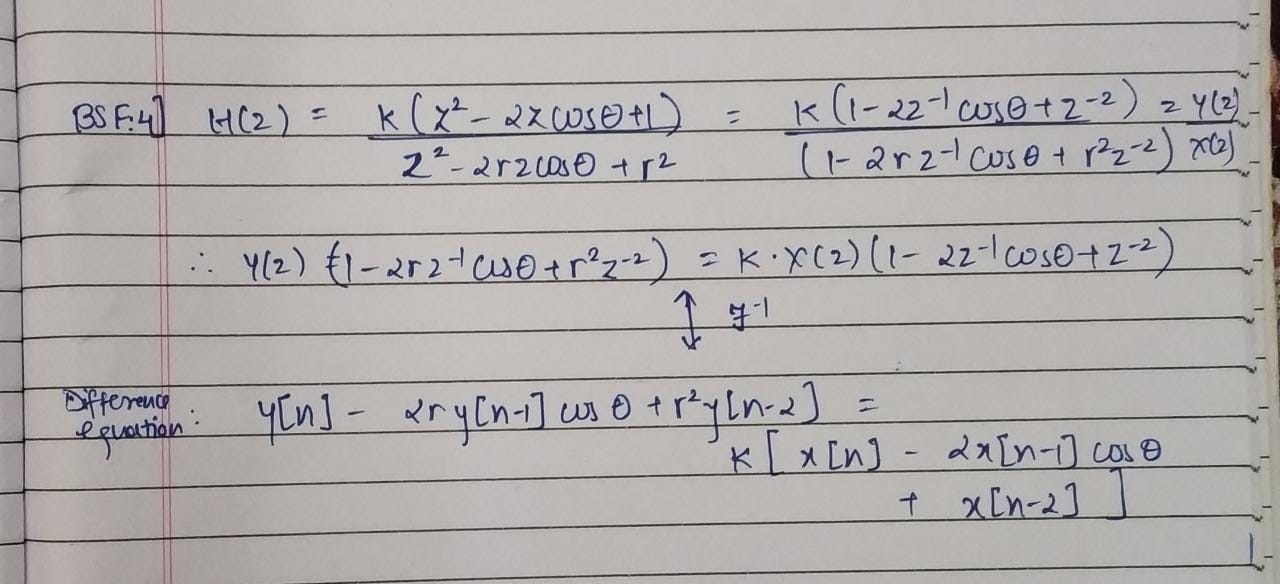 BSF:4] H(z) = K(z² - 2z cosθ + 1) / z² - 2rz cosθ + r² = K(1 - 2z⁻¹ cosθ + z⁻²) / (1 - 2rz⁻¹ cosθ + r²z⁻²) = Y(z) / X(z)
∴ Y(z) (1 - 2rz⁻¹ cosθ + r²z⁻²) = K · X(z) (1 - 2z⁻¹ cosθ + z⁻²)
↕ z⁻¹
Difference equation: y[n] - 2ry[n-1] cos θ + r²y[n-2] =
K [ x[n] - 2x[n-1] cos θ
+ x[n-2] ]